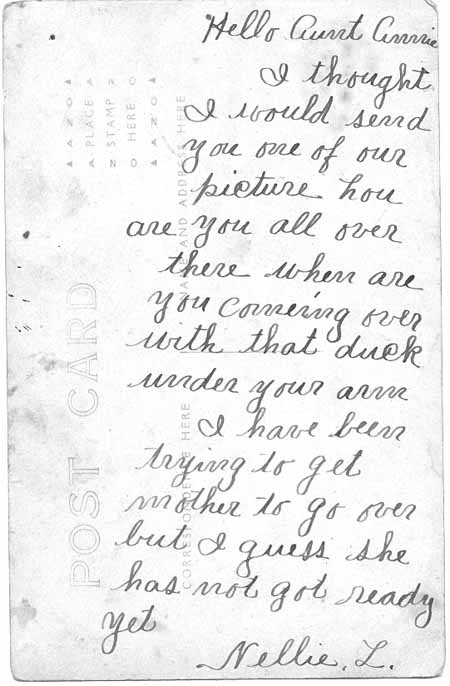 Hello Aunt Annie
I thought
I would send
you one of our
picture hou
are you all over
there when are
you comeing over
with that duck
under your arm
I have been
trying to get
mother to go over
but I guess she
has not got ready
yet
Nellie. L.
POST CARD
CORRESPONDENCE HERE
NAME AND ADDRESS HERE
PLACE
STAMP
HERE